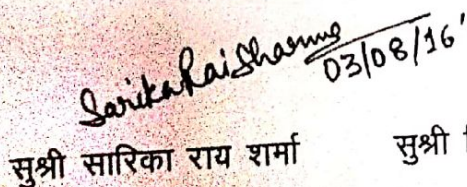 Sarika Rai Sharma
03/08/16
सुश्री सारिका राय शर्मा सुश्री